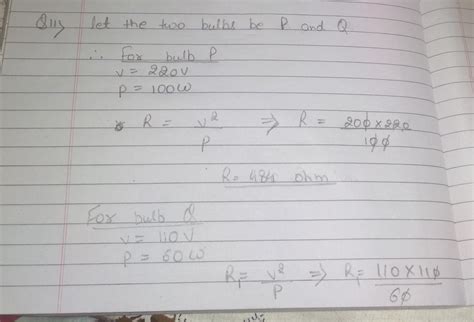 Q11) let the two bulbs be P and Q.
∴ For bulb P
V = 220V
P = 100W
R = V²/P ⇒ R = 200×220/100
R = 484 ohm
For bulb Q
V = 110V
P = 60W
R₁ = V²/P ⇒ R₁ = 110×110/60